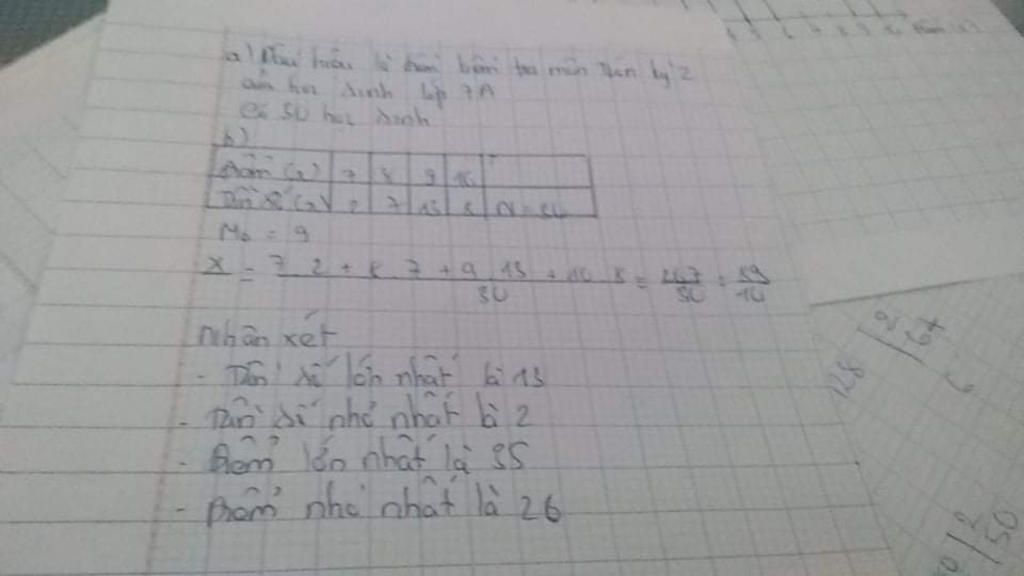 a) Dấu hiệu là bài kiểm tra môn Toán kỳ 2
của học sinh lớp 7A
Có 30 học sinh
b)
Điểm (x) 7 8 9 10
Tần số (n) 2 7 13 8 N = 30
M₀ = 9
X = 7 2 + 8 7 + 9 13 + 10 8 / 30 = 267 / 30 = 89 / 10
Nhận xét
- Tần số lớn nhất là 13
- Tần số nhỏ nhất là 2
- Điểm lớn nhất là 35
- Điểm nhỏ nhất là 26
128
2
64
2
50